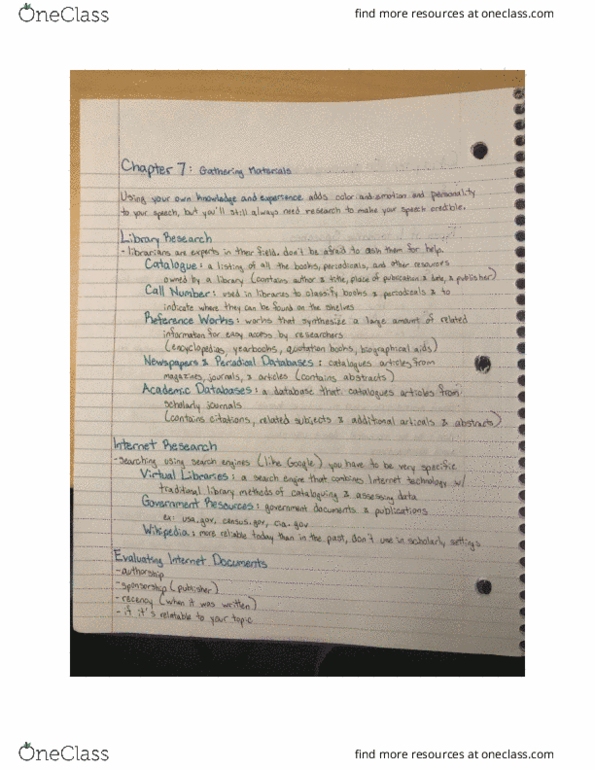 OneClass
find more resources at oneclass.com
Chapter 7: Gathering Materials
Using your own knowledge and experience adds color and emotion and personality
to your speech, but you'll still always need research to make your speech credible.
Library Research
- librarians are experts in their field, don't be afraid to ask them for help
Catalogue: a listing of all the books, periodicals, and other resources
owned by a library (contains author & title, place of publication & date, & publisher)
Call Number: used in libraries to classify books & periodicals & to
indicate where they can be found on the shelves
Reference Works: works that synthesize a large amount of related
information for easy access by researchers
(encyclopedias, yearbooks, quotation books, biographical aids)
Newspapers & Periodical Databases: catalogues articles from
magazines, journals, & articles (contains abstracts)
Academic Databases: a database that catalogues articles from
scholarly journals
(contains citations, related subjects & additional articals & abstracts)
Internet Research
- searching using search engines (like Google) you have to be very specific
Virtual Libraries: a search engine that combines Internet technology w/
traditional library methods of cataloguing & assessing data
Government Resources: government documents & publications
ex: usa.gov, census.gov, cia.gov
Wikipedia: more reliable today than in the past, don't use in scholarly settings
Evaluating Internet Documents
- authorship
- sponsorship (publisher)
- recency (when it was written)
- if it's relatable to your topic
OneClass
find more resources at oneclass.com